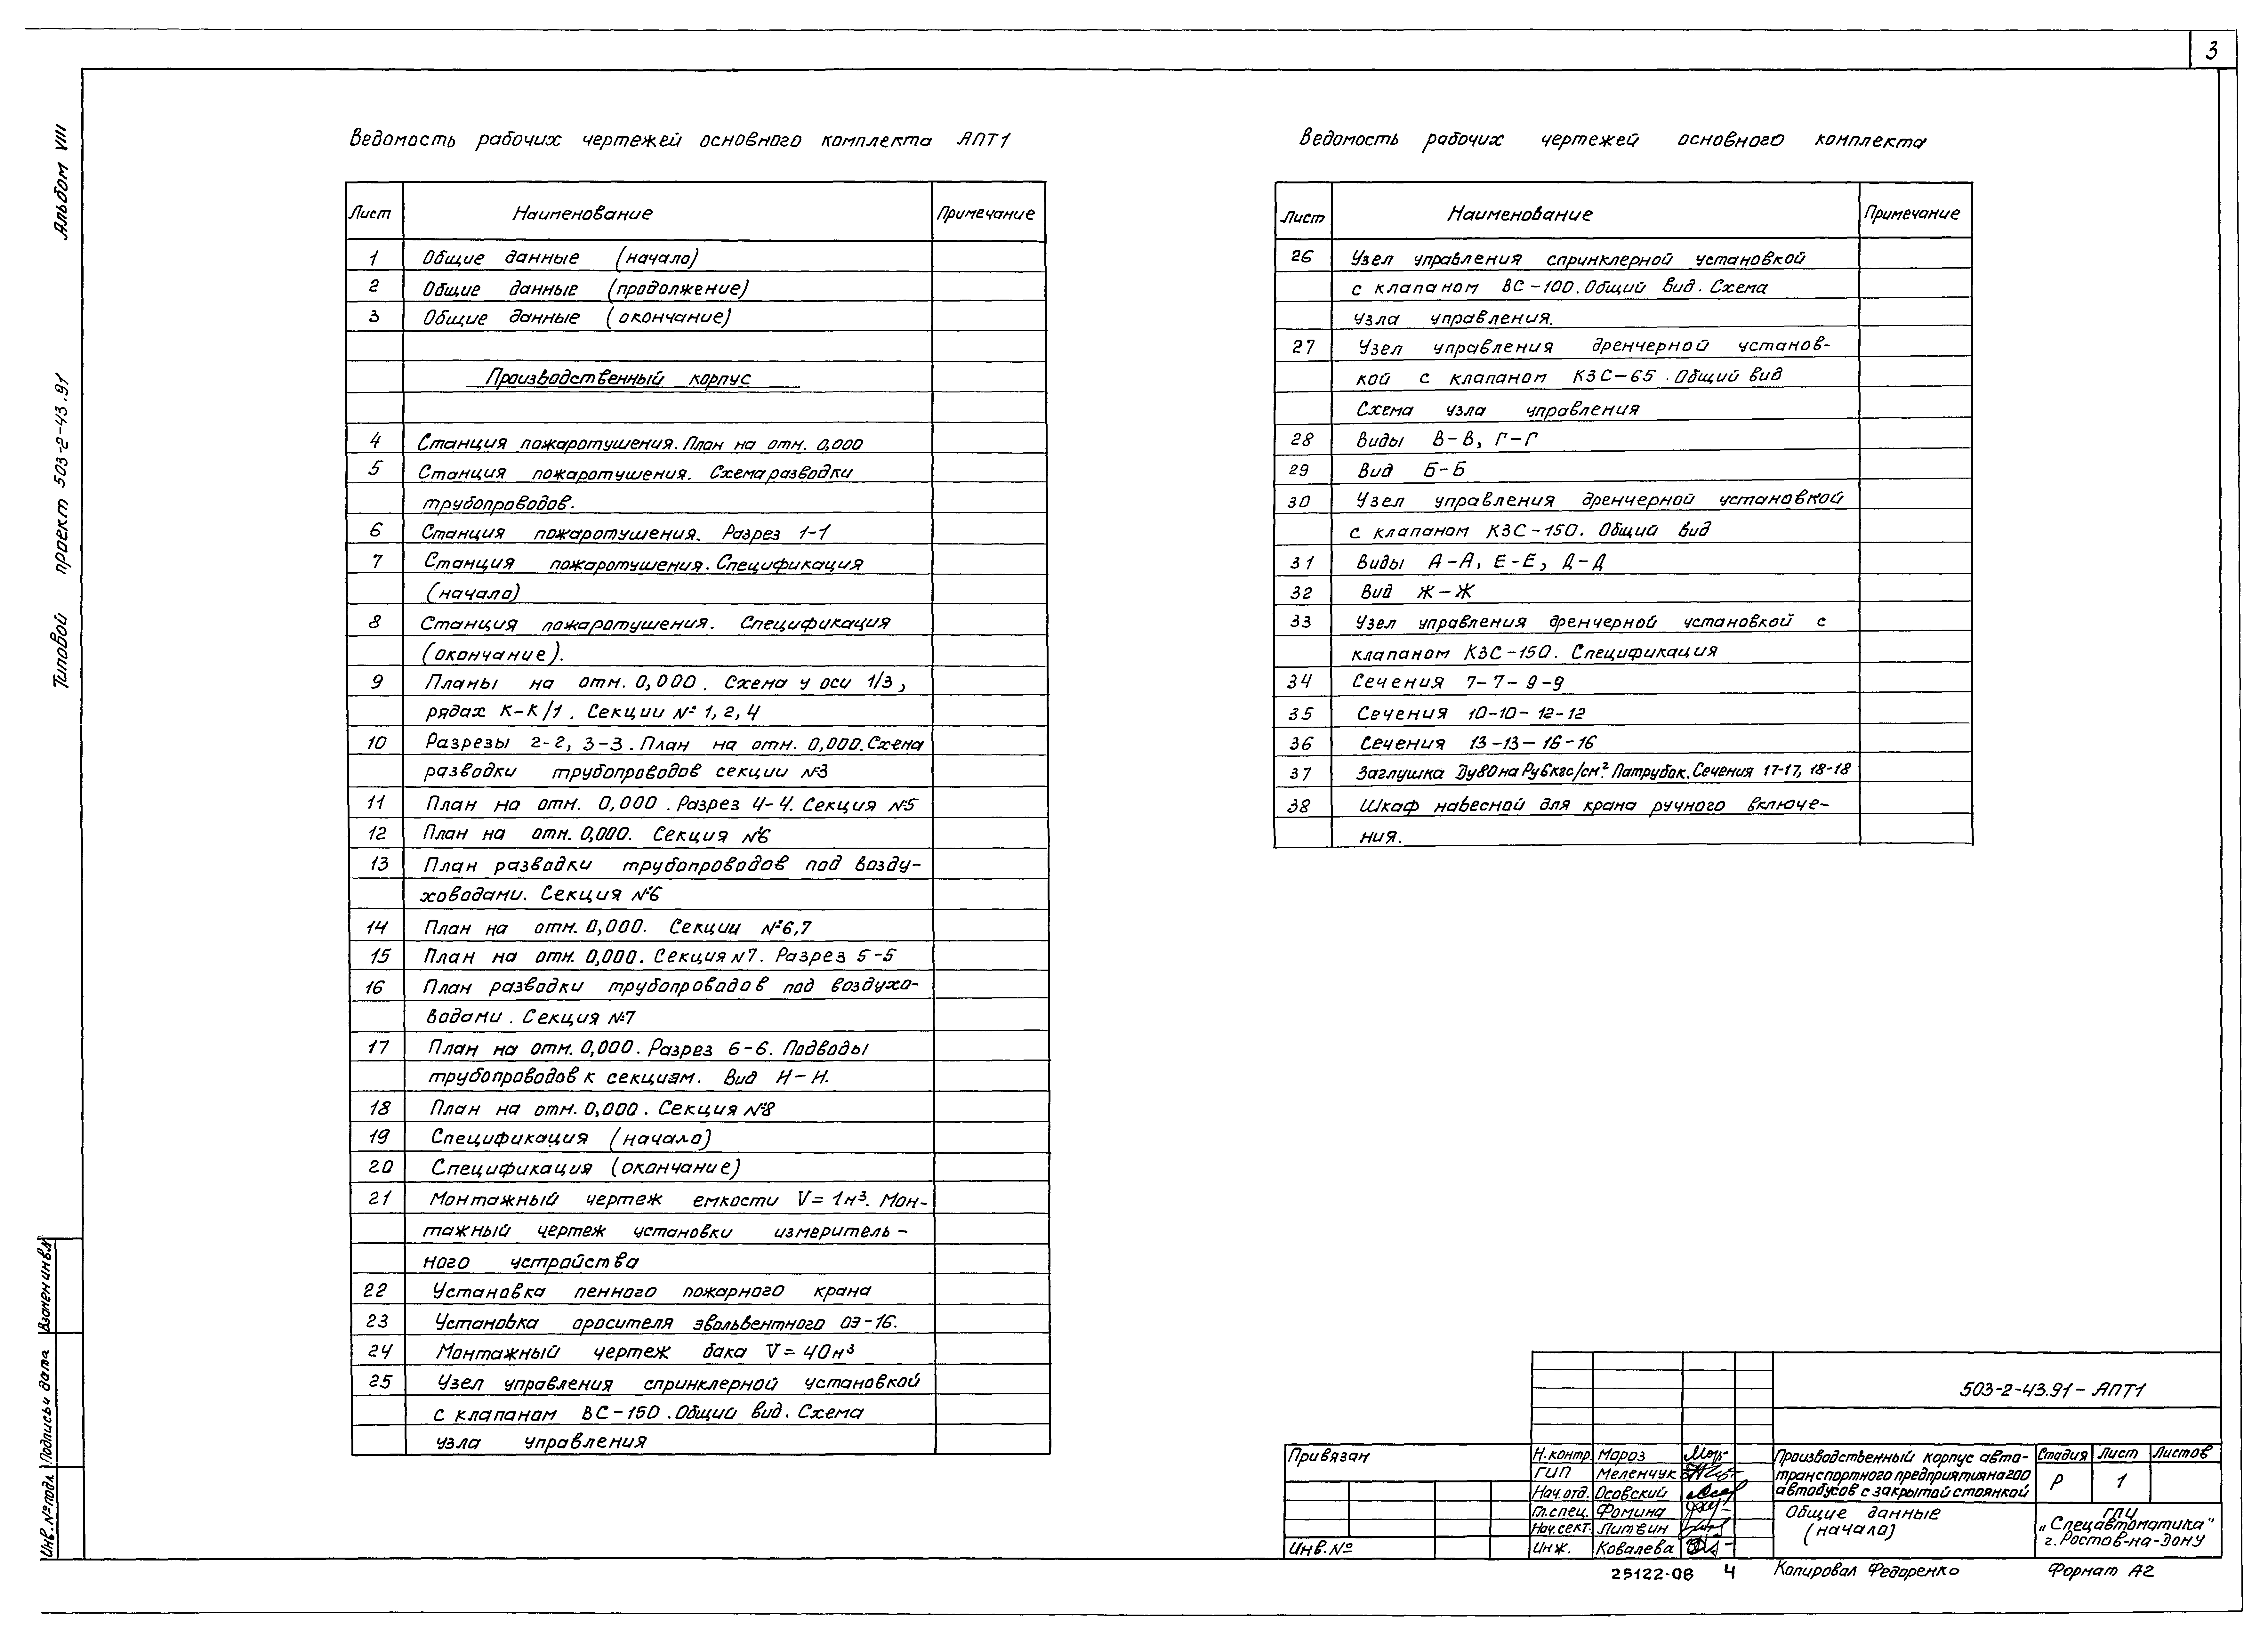 3
Альбом VIII
Типовой проект 503-2-43.91
Ведомость рабочих чертежей основного комплекта АПТ1
Лист Наименование Примечание
1 Общие данные (начало)
2 Общие данные (продолжение)
3 Общие данные (окончание)
Производственный корпус
4 Станция пожаротушения. План на отм. 0,000
5 Станция пожаротушения. Схема разводки
трубопроводов.
6 Станция пожаротушения. Разрез 1-1
7 Станция пожаротушения. Спецификация
(начало)
8 Станция пожаротушения. Спецификация
(окончание).
9 Планы на отм. 0,000. Схема у оси 1/3,
рядах К-К/1. Секции № 1, 2, 4
10 Разрезы 2-2, 3-3. План на отм. 0,000. Схема
разводки трубопроводов секции №3
11 План на отм. 0,000. Разрез 4-4. Секция №5
12 План на отм. 0,000. Секция №6
13 План разводки трубопроводов под возду-
ховодами. Секция №6
14 План на отм. 0,000. Секции №6,7
15 План на отм. 0,000. Секция N7. Разрез 5-5
16 План разводки трубопроводов под воздухо-
водами. Секция №7
17 План на отм. 0,000. Разрез 6-6. Подводы
трубопроводов к секциям. Вид И-И.
18 План на отм. 0,000. Секция №8
19 Спецификация (начало)
20 Спецификация (окончание)
21 Монтажный чертеж емкости V=1м³. Мон-
тажный чертеж установки измеритель-
ного устройства
22 Установка пенного пожарного крана
23 Установка оросителя эвольвентного ОЭ-16.
24 Монтажный чертеж бака V=40м³
25 Узел управления спринклерной установкой
с клапаном ВС-150. Общий вид. Схема
узла управления
Ведомость рабочих чертежей основного комплекта
Лист Наименование Примечание
26 Узел управления спринклерной установкой
с клапаном ВС-100. Общий вид. Схема
узла управления.
27 Узел управления дренчерной установ-
кой с клапаном КЗС-65. Общий вид
Схема узла управления
28 Виды В-В, Г-Г
29 Вид Б-Б
30 Узел управления дренчерной установкой
с клапаном КЗС-150. Общий вид
31 Виды А-А, Е-Е, Д-Д
32 Вид Ж-Ж
33 Узел управления дренчерной установкой с
клапаном КЗС-150. Спецификация
34 Сечения 7-7-9-9
35 Сечения 10-10-12-12
36 Сечения 13-13-16-16
37 Заглушка Ду80 на Ру6кгс/см². Патрубок. Сечения 17-17, 18-18
38 Шкаф навесной для крана ручного включе-
ния.
Взамен инв.N
Подпись и дата
Инв.№ подл.
Привязан
Инв.№
503-2-43.91-АПТ1
Н.контр. Мороз
ГИП Меленчук
Нач.отд. Осовский
Гл.спец. Фомина
Нач.сект. Литвин
Инж. Ковалева
Производственный корпус авто-
транспортного предприятия на 200
автобусов с закрытой стоянкой
Стадия Лист Листов
Р 1
Общие данные
(начало)
ГПЦ
"Спецавтоматика"
г. Ростов-на-Дону
25122-08 4 Копировал Федоренко Формат А2